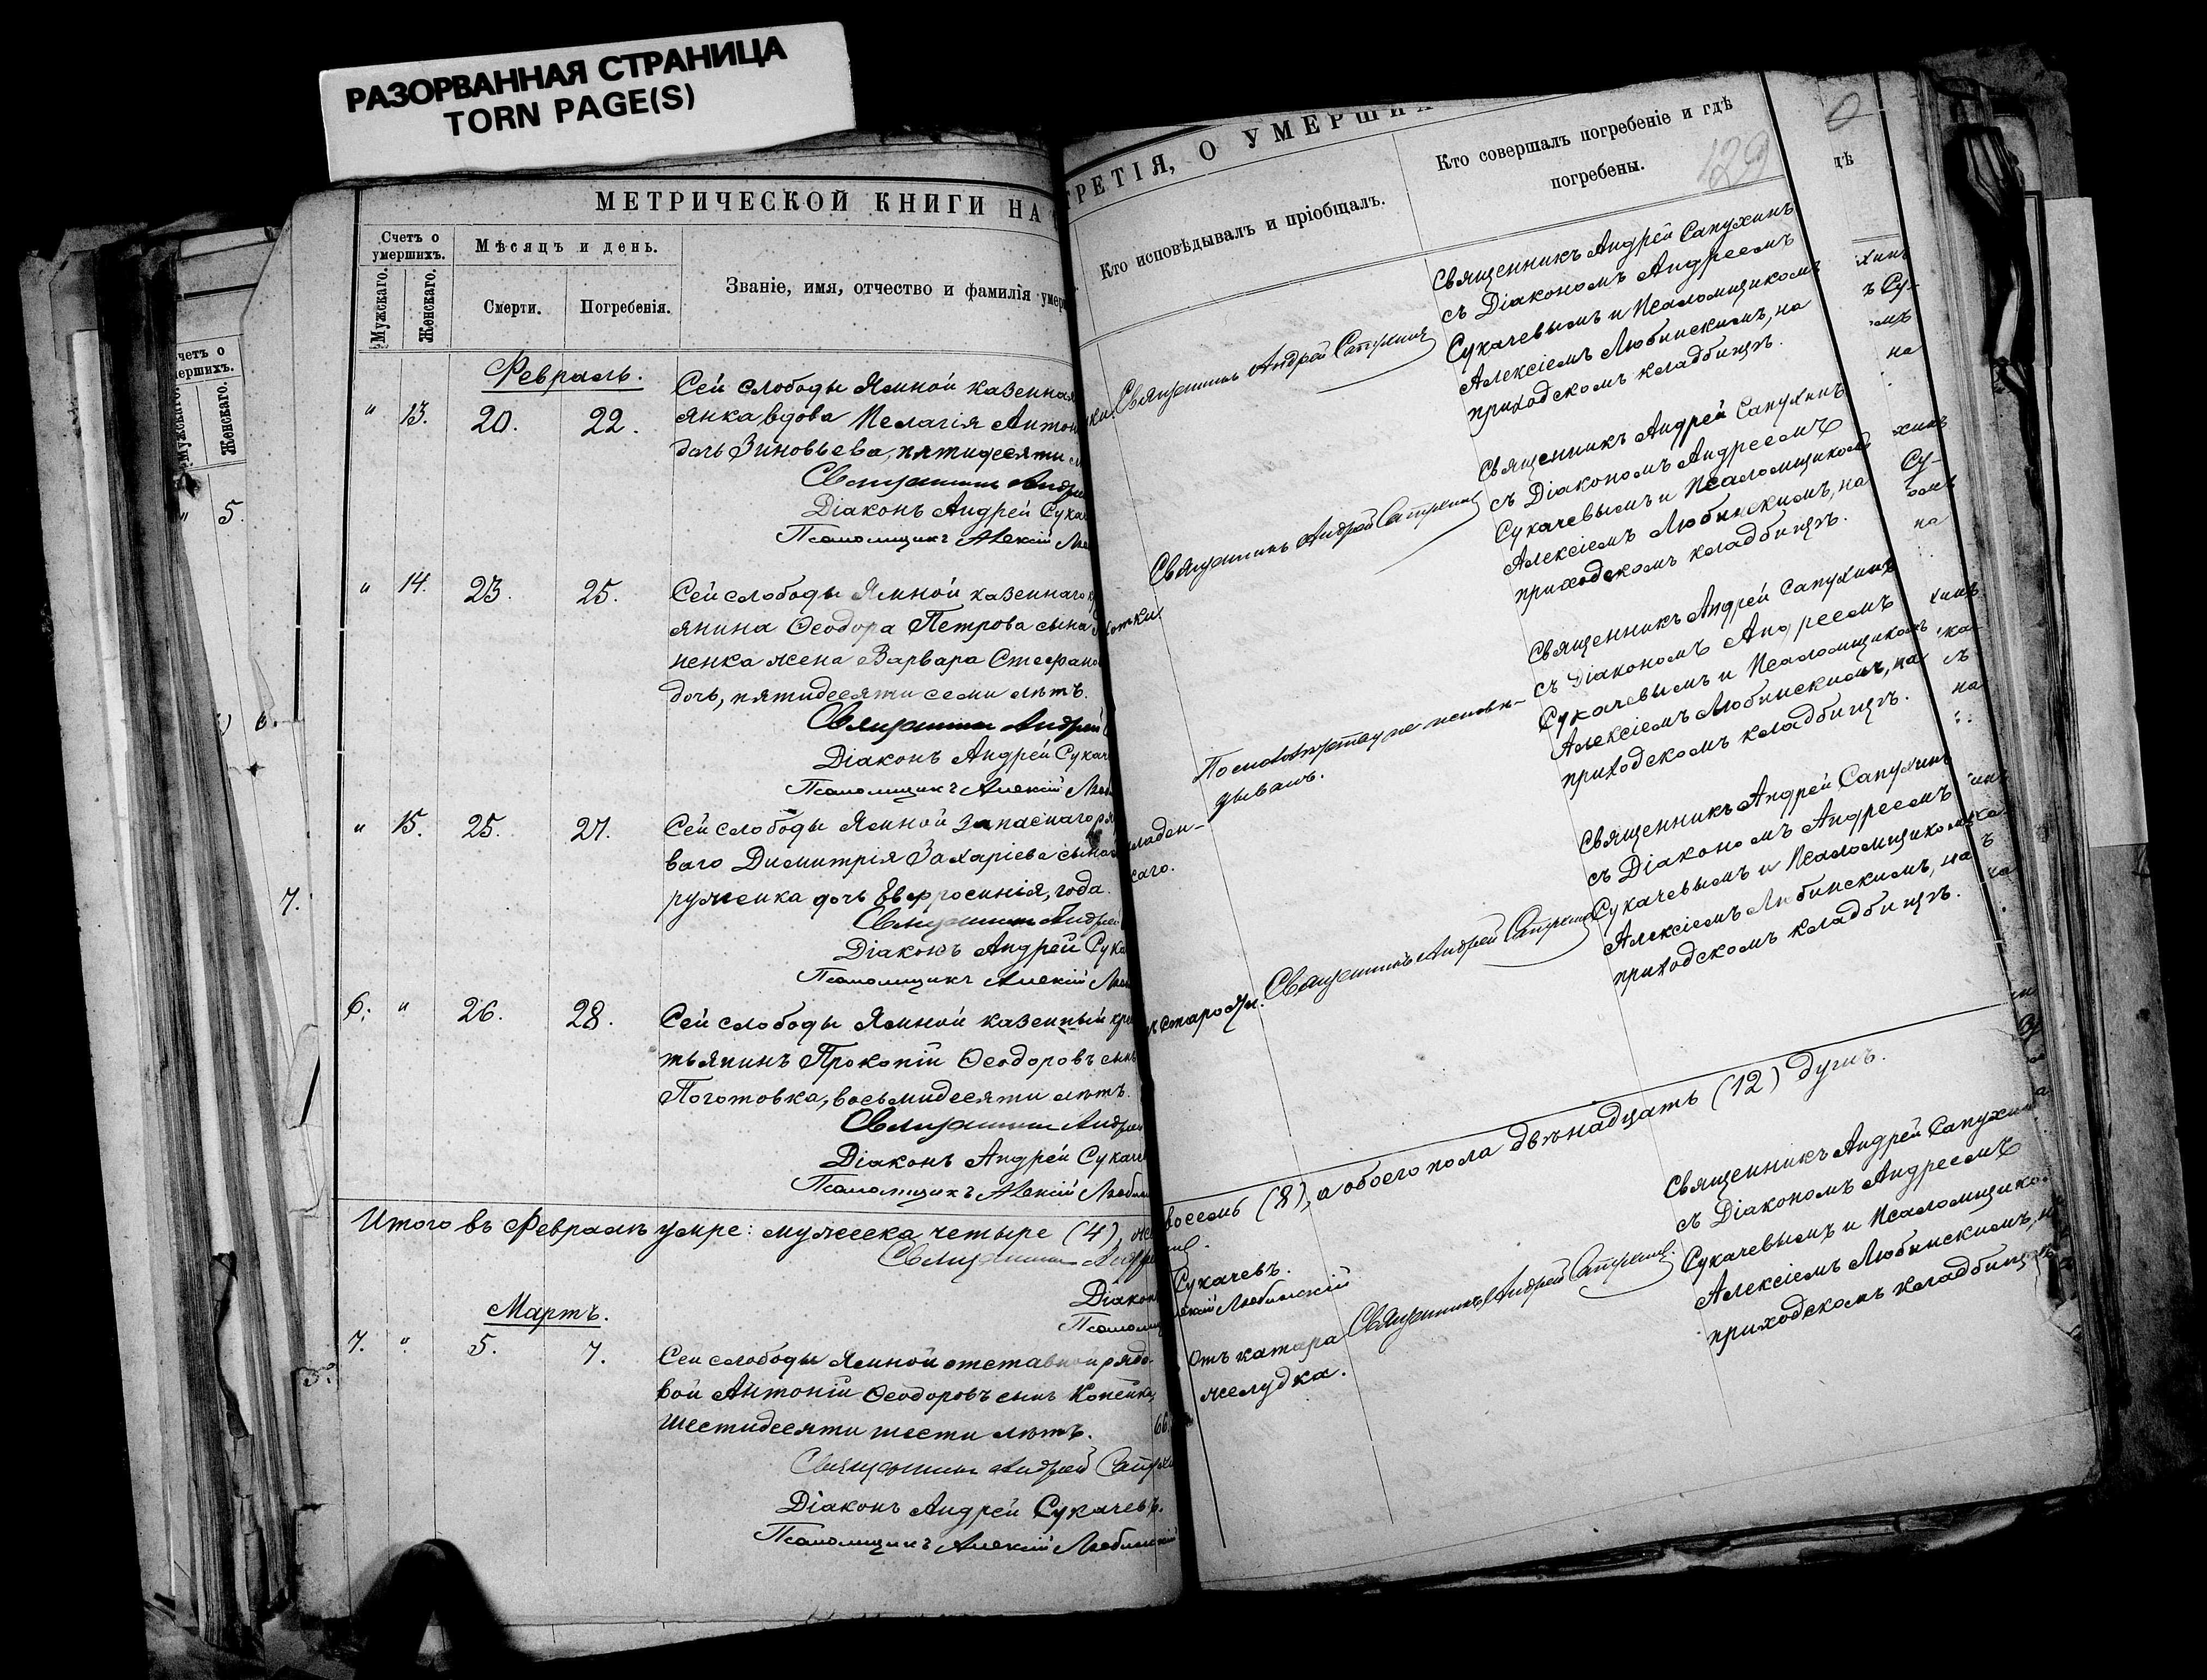 РАЗОРВАННАЯ СТРАНИЦА
TORN PAGE(S)
МЕТРИЧЕСКОЙ КНИГИ НА
Счетъ о умершихъ.
Мужскаго.
Женскаго.
Мѣсяцъ и день.
Смерти.
Погребенія.
Званіе, имя, отчество и фамилія умер
Февраль.
" 13. 20. 22.
Сей слободы Ямной казенная
янка вдова Пелагія Антон
дочь Зиновьева, пятидесяти
Священникъ Андрей
Діаконъ Андрей Сука
Псаломщикъ Алексій Лю
" 14. 23. 25.
Сей слободы Ямной казеннаго
янина Ѳеодора Петрова сына
ненка жена Варвара Стефано
дочь, пятидесяти семи лѣтъ.
Священникъ Андрей
Діаконъ Андрей Сукач
Псаломщикъ Алексій Люб
" 15. 25. 27.
Сей слободы Ямной запаснаго ря
ваго Димитрія Захаріева сына
руженка дочь Евфросинія, года.
Священникъ Андрей
Діаконъ Андрей Сука
Псаломщикъ Алексій Лю
6. " 26. 28.
Сей слободы Ямной казенный кре
тьянинъ Прокопій Ѳеодоровъ сынъ
Поготовка, восьмидесяти лѣтъ.
Священникъ Андрей
Діаконъ Андрей Сукаче
Псаломщикъ Алексій Любин
Итого въ Февралѣ умре: мужеска четыре (4), же
Священникъ Андре
Діакон
Псаломщ
Мартъ.
7. " 5. 7.
Сей слободы Ямной отставной рядо-
вой Антоній Ѳеодоровъ сынъ Копейка,
шестидесяти шести лѣтъ.
66
Священникъ Андрей Сапухи
Діаконъ Андрей Сукачевъ.
Псаломщикъ Алексій Любинскій
ТРЕТІЯ, О УМЕРШИХ
Кто исповѣдывалъ и пріобщалъ.
Кто совершалъ погребеніе и гдѣ
погребены.
129
Священникъ Андрей Сапухинъ
Священникъ Андрей Сапухинъ
съ Діакономъ Андреемъ
Сукачевымъ и Псаломщикомъ
Алексіемъ Любинскимъ, на
приходскомъ кладбищѣ.
Священникъ Андрей Сапухинъ
Священникъ Андрей Сапухинъ
съ Діакономъ Андреемъ
Сукачевымъ и Псаломщикомъ
Алексіемъ Любинскимъ, на
приходскомъ кладбищѣ.
младен-
скаго.
По младенчеству не исповѣ-
дывань.
Священникъ Андрей Сапухинъ
съ Діакономъ Андреемъ
Сукачевымъ и Псаломщикомъ
Алексіемъ Любинскимъ, на
приходскомъ кладбищѣ.
старости.
Священникъ Андрей Сапухинъ
Священникъ Андрей Сапухинъ
съ Діакономъ Андреемъ
Сукачевымъ и Псаломщикомъ
Алексіемъ Любинскимъ, на
приходскомъ кладбищѣ.
восемь (8), а обоего пола двѣнадцать (12) душъ.
Сукачевъ.
Любинскій
Отъ катара
желудка.
Священникъ Андрей Сапухинъ.
Священникъ Андрей Сапухинъ
съ Діакономъ Андреемъ
Сукачевымъ и Псаломщико
Алексіемъ Любинскимъ, на
приходскомъ кладбищѣ